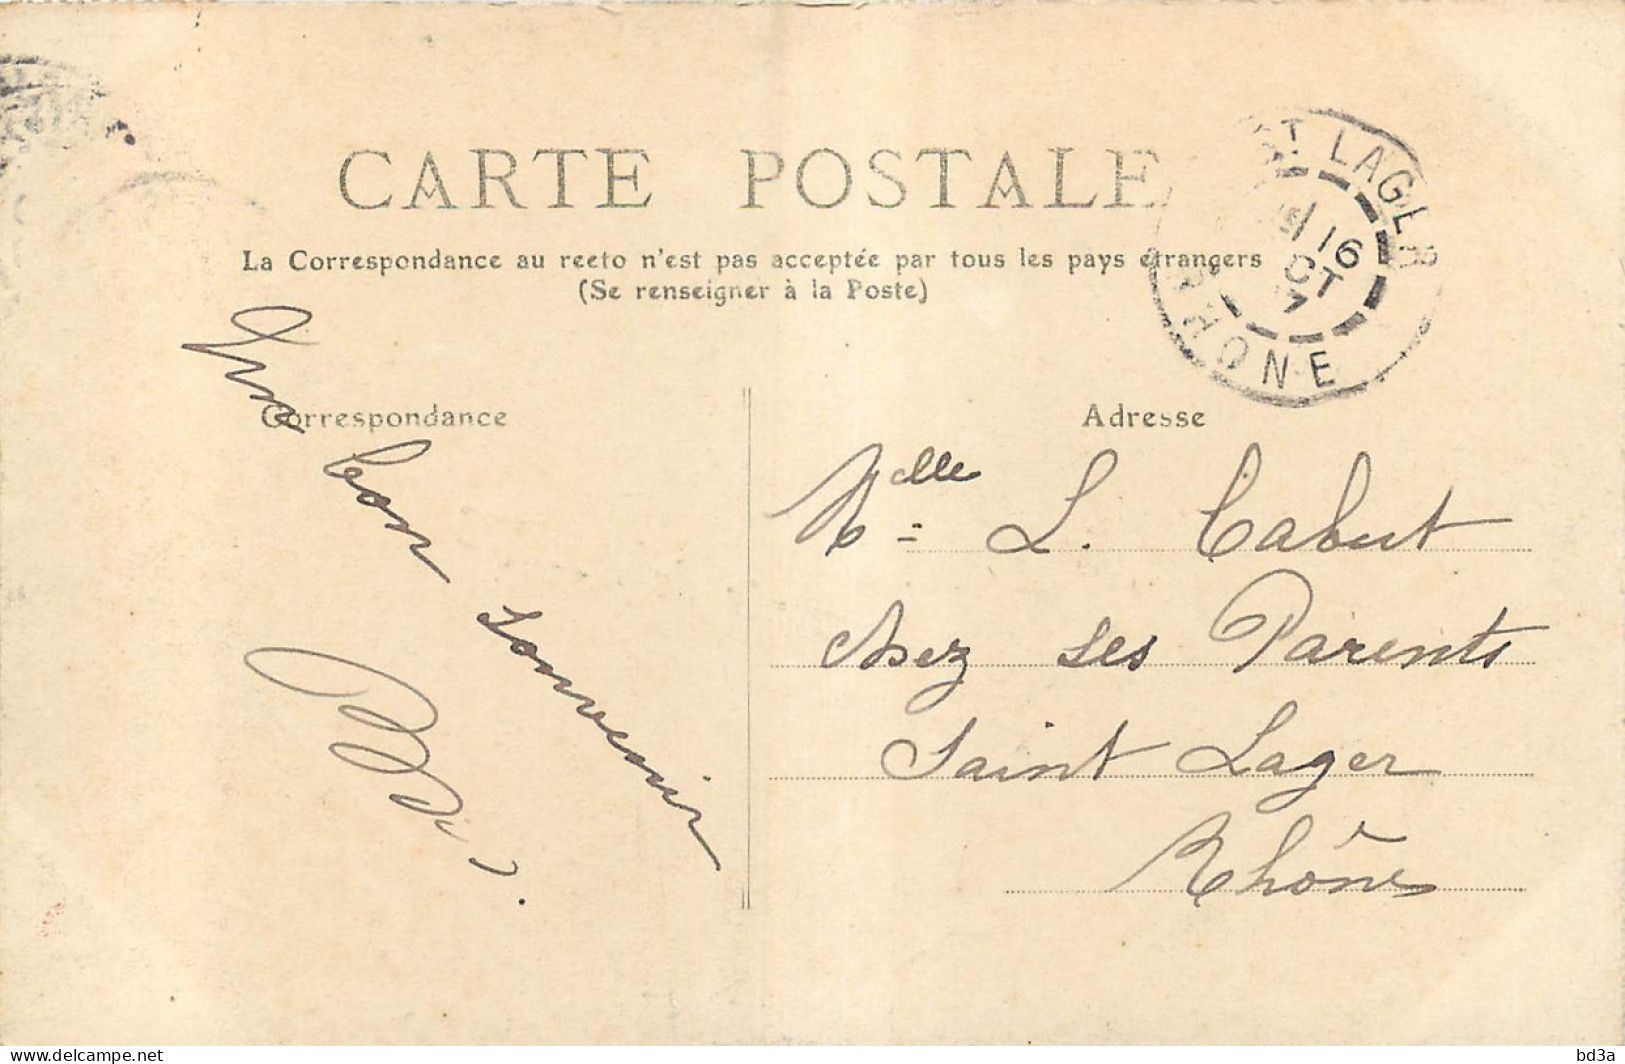 CARTE POSTALE
La Correspondance au recto n'est pas acceptée par tous les pays étrangers
(Se renseigner à la Poste)
ST LAGER
16
OCT
7
RHONE
Correspondance
Un bon
souvenir
Adresse
Melle L. Cabut
chez ses Parents
Saint Lager
Rhône
www.delcampe.net
bd3a